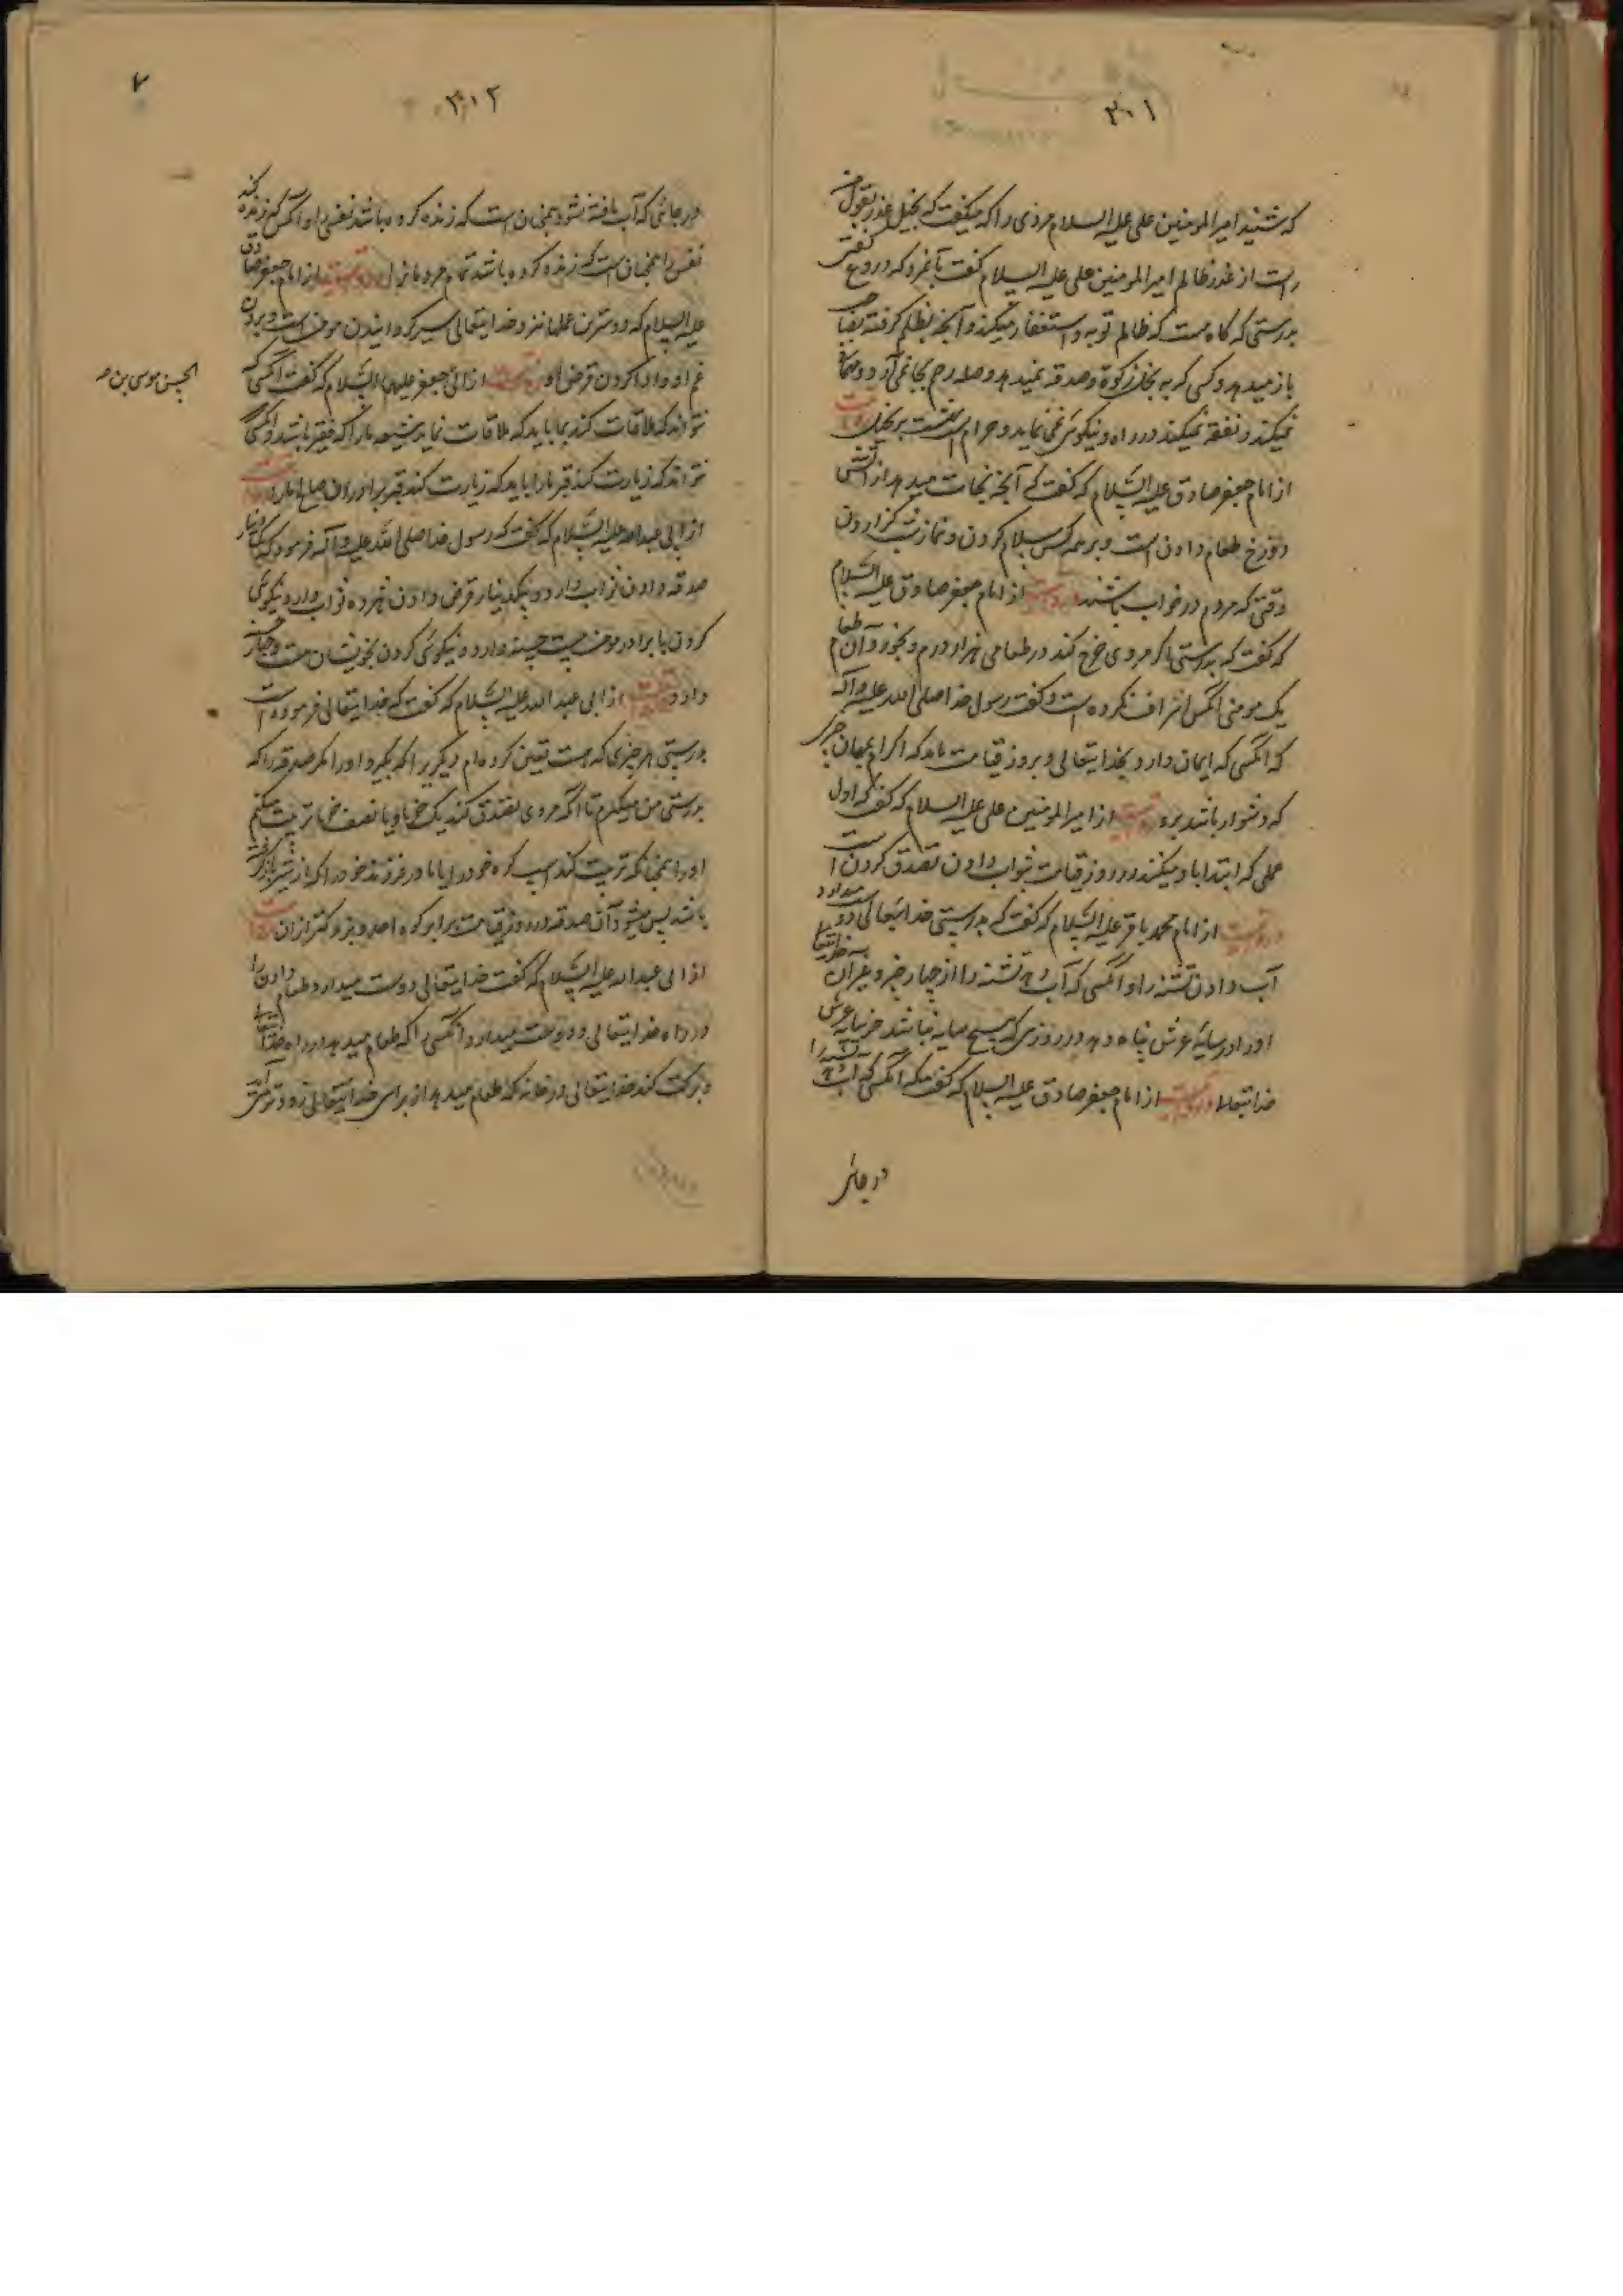 ۳۰۱
که شنید امیر المومنین علی علیه السلام مردی را که میگفت که بخیل عذر بقول
است از عذر ظالم امیر المومنین علی علیه السلام گفت بآنمرد که دروغ گفتی
بدرستی که گاه هست که ظالم توبه و استغفار میکند و آنچه بظلم گرفته
باز میدهد و کسی که بخل زکوة و صدقه نمیدهد و صله رحم بجا نمی آرد و مهمانی
نمیکند و نفقه نمیکند در راه و نیکوئی نمی نماید و حرام است بهشت بر بخیل
از امام جعفر صادق علیه السلام که گفت که آنچه نجات میدهد از آتش
دوزخ طعام دادن است و بر همه کس سلام کردن و نماز شب گزاردن
وقتی که مردم در خواب باشند در و از امام جعفر صادق علیه السلام
که گفت که بدرستی اگر مردی خرج کند در طعامی هزار درم و بخورد آن طعام
یک مومنی آنکس اسراف نکرده است و گفت رسول خدا صلی الله علیه و آله
که آنکسی که ایمان دارد بخدایتعالی و بروز قیامت باید که اکرام مهمان
که دشوار باشد بر و از امیر المومنین علی علیه السلام که گفت که اول
عملی که ابتدا باو میکنند در روز قیامت ثواب دادن تصدق کردن است
از امام محمد باقر علیه السلام که گفت که بدرستی خدایتعالی دوست میدارد
آب دادن تشنه را و آنکسی که آب دهد تشنه را از چهارپا و غیر آن
او را در سایه عرش پناه دهد در روزی که هیچ سایه نباشد جز سایه عرش
خدایتعالی از امام جعفر صادق علیه السلام که گفت که آنکسی که آب دهد تشنه را
در جائی
۳۰۲
در جائی که آب یافته نشود همچنان است که زنده کرده باشد نفسی را و آنکس که زنده کند
نفسی را همچنان است که زنده کرده باشد تمام مردمانرا از امام جعفر صادق
علیه السلام که دوسترین عملها نزد خدایتعالی سیر گردانیدن مومن است و بردن
غم او و ادا کردن قرض او از ابی جعفر علیه السلام که گفت آنکسی
نتواند که ملاقات کند بما باید که ملاقات نماید شیعه ما را که فقیر باشد و آنکسی
نتواند که زیارت کند قبر ما را باید که زیارت کند قبر برادران صالح ما را
از ابی عبدالله علیه السلام که گفت که رسول خدا صلی الله علیه و آله فرمود که یکدینار
صدقه دادن ثواب دارد و یکدینار قرض دادن ثواب دارد و نیکوئی
کردن با برادر مومن بیست حسنه دارد و نیکوئی کردن بخویشان بیست و چهار حسنه
دارد از ابی عبد الله علیه السلام که گفت که خدایتعالی فرموده است
بدرستی هر چیزی که هست تعین کرده ام دیگریرا که بگیرد او را مگر صدقه را که
بدرستی من میگیرم تا آنکه مردی تصدق کند یک خرما و یا نصف خرما تربیت میکنم
او را همچنانکه تربیت کند اسب کره خود را یا مادر فرزند خود را که از شیر
باشد پس میشود آن صدقه در روز قیامت برابر کوه احد و بزرگتر از آن
از ابی عبدالله علیه السلام که گفت خدایتعالی دوست میدارد طعام دادن را
در راه خدایتعالی و دوست میدارد آنکسی را که طعام میدهد در راه خدایتعالی
و برکت کند خدایتعالی در خانه که طعام میدهد از برای خدایتعالی زودتر
الحسن موسی بن